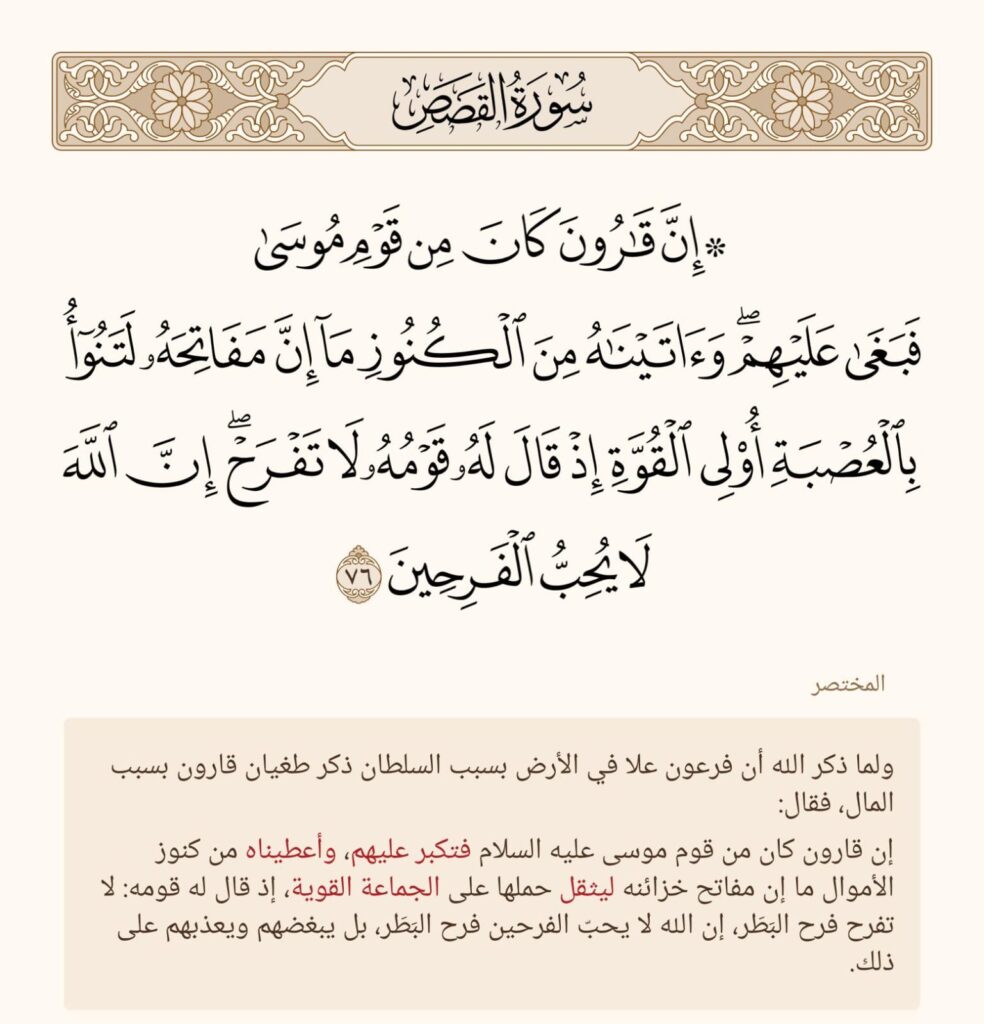 سُورَةُ القَصَصِ
۞ إِنَّ قَـٰرُونَ كَانَ مِن قَوۡمِ مُوسَىٰ
فَبَغَىٰ عَلَيۡهِمۡۖ وَءَاتَيۡنَـٰهُ مِنَ ٱلۡكُنُوزِ مَآ إِنَّ مَفَاتِحَهُۥ لَتَنُوٓأُ
بِٱلۡعُصۡبَةِ أُوْلِى ٱلۡقُوَّةِ إِذۡ قَالَ لَهُۥ قَوۡمُهُۥ لَا تَفۡرَحۡۖ إِنَّ ٱللَّهَ
لَا يُحِبُّ ٱلۡفَرِحِينَ ٧٦
المختصر
ولما ذكر الله أن فرعون علا في الأرض بسبب السلطان ذكر طغيان قارون بسبب
المال، فقال:
إن قارون كان من قوم موسى عليه السلام فتكبر عليهم، وأعطيناه من كنوز
الأموال ما إن مفاتح خزائنه ليثقل حملها على الجماعة القوية، إذ قال له قومه: لا
تفرح فرح البَطَر، إن الله لا يحبّ الفرحين فرح البَطَر، بل يبغضهم ويعذبهم على
ذلك.